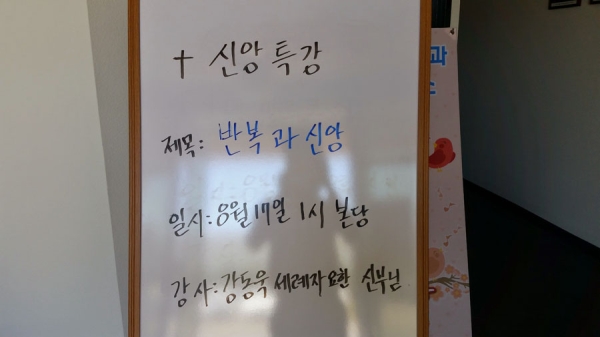 † 신앙특강
제목: 반복과 신앙
일시: 8월 17일 1시 본당
강사: 강동욱 세례자요한 신부님
과